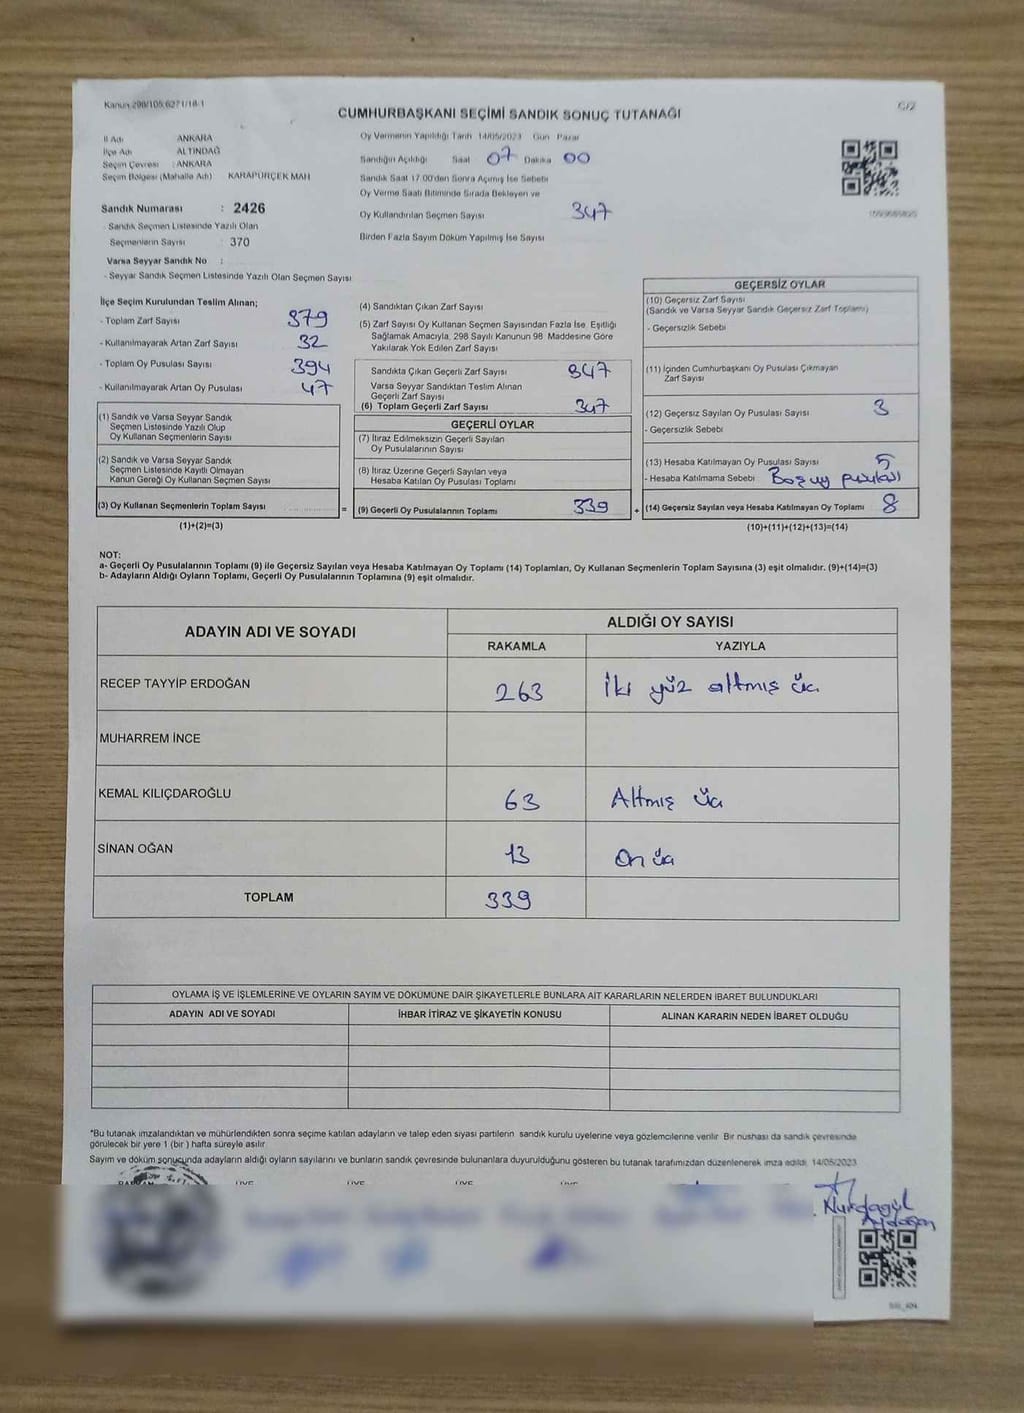 Kanun 298/105,6271/18-1
C/2
CUMHURBAŞKANI SEÇİMİ SANDIK SONUÇ TUTANAĞI
İl Adı : ANKARA
İlçe Adı : ALTINDAĞ
Seçim Çevresi : ANKARA
Seçim Bölgesi (Mahalle Adı) KARAPÜRÇEK MAH
Sandık Numarası : 2426
- Sandık Seçmen Listesinde Yazılı Olan
Seçmenlerin Sayısı : 370
Varsa Seyyar Sandık No :
- Seyyar Sandık Seçmen Listesinde Yazılı Olan Seçmen Sayısı
Oy Vermenin Yapıldığı Tarih 14/05/2023 Gün Pazar
Sandığın Açıldığı Saat 07 Dakika 00
Sandık Saat 17.00'den Sonra Açımış İse Sebebi
Oy Verme Saati Bitiminde Sırada Bekleyen ve
Oy Kullandırılan Seçmen Sayısı 347
Birden Fazla Sayım Döküm Yapılmış İse Sayısı
İlçe Seçim Kurulundan Teslim Alınan;
- Toplam Zarf Sayısı 379
- Kullanılmayarak Artan Zarf Sayısı 32
- Toplam Oy Pusulası Sayısı 394
- Kullanılmayarak Artan Oy Pusulası 47
(1) Sandık ve Varsa Seyyar Sandık
Seçmen Listesinde Yazılı Olup
Oy Kullanan Seçmenlerin Sayısı
(2) Sandık ve Varsa Seyyar Sandık
Seçmen Listesinde Kayıtlı Olmayan
Kanun Gereği Oy Kullanan Seçmen Sayısı
(3) Oy Kullanan Seçmenlerin Toplam Sayısı =
(1)+(2)=(3)
(4) Sandıktan Çıkan Zarf Sayısı
(5) Zarf Sayısı Oy Kullanan Seçmen Sayısından Fazla İse, Eşitliği
Sağlamak Amacıyla, 298 Sayılı Kanunun 98. Maddesine Göre
Yakılarak Yok Edilen Zarf Sayısı
Sandıkta Çıkan Geçerli Zarf Sayısı 347
Varsa Seyyar Sandıktan Teslim Alınan
Geçerli Zarf Sayısı
(6) Toplam Geçerli Zarf Sayısı 347
GEÇERLİ OYLAR
(7) İtiraz Edilmeksizin Geçerli Sayılan
Oy Pusulalarının Sayısı
(8) İtiraz Üzerine Geçerli Sayılan veya
Hesaba Katılan Oy Pusulası Toplamı
(9) Geçerli Oy Pusulalarının Toplamı 339 +
GEÇERSİZ OYLAR
(10) Geçersiz Zarf Sayısı
(Sandık ve Varsa Seyyar Sandık Geçersiz Zarf Toplamı)
- Geçersizlik Sebebi
(11) İçinden Cumhurbaşkanı Oy Pusulası Çıkmayan
Zarf Sayısı
(12) Geçersiz Sayılan Oy Pusulası Sayısı 3
- Geçersizlik Sebebi
(13) Hesaba Katılmayan Oy Pusulası Sayısı 5
- Hesaba Katılmama Sebebi Boş uy pusulası
(14) Geçersiz Sayılan veya Hesaba Katılmayan Oy Toplamı 8
(10)+(11)+(12)+(13)=(14)
NOT:
a- Geçerli Oy Pusulalarının Toplamı (9) ile Geçersiz Sayılan veya Hesaba Katılmayan Oy Toplamı (14) Toplamları, Oy Kullanan Seçmenlerin Toplam Sayısına (3) eşit olmalıdır. (9)+(14)=(3)
b- Adayların Aldığı Oyların Toplamı, Geçerli Oy Pusulalarının Toplamına (9) eşit olmalıdır.
ADAYIN ADI VE SOYADI ALDIĞI OY SAYISI
RAKAMLA YAZIYLA
RECEP TAYYİP ERDOĞAN 263 İki yüz altmış üç
MUHARREM İNCE
KEMAL KILIÇDAROĞLU 63 Altmış üç
SİNAN OĞAN 13 On üç
TOPLAM 339
OYLAMA İŞ VE İŞLEMLERİNE VE OYLARIN SAYIM VE DÖKÜMÜNE DAİR ŞİKAYETLERLE BUNLARA AİT KARARLARIN NELERDEN İBARET BULUNDUKLARI
ADAYIN ADI VE SOYADI İHBAR İTİRAZ VE ŞİKAYETİN KONUSU ALINAN KARARIN NEDEN İBARET OLDUĞU
*Bu tutanak imzalandıktan ve mühürlendikten sonra seçime katılan adayların ve talep eden siyasi partilerin sandık kurulu üyelerine veya gözlemcilerine verilir. Bir nüshası da sandık çevresinde
görülecek bir yere 1 (bir ) hafta süreyle asılır.
Sayım ve döküm sonucunda adayların aldığı oyların sayılarını ve bunların sandık çevresinde bulunanlara duyurulduğunu gösteren bu tutanak tarafımızdan düzenlenerek imza edildi. 14/05/2023
Nurdagül
Aydoğan